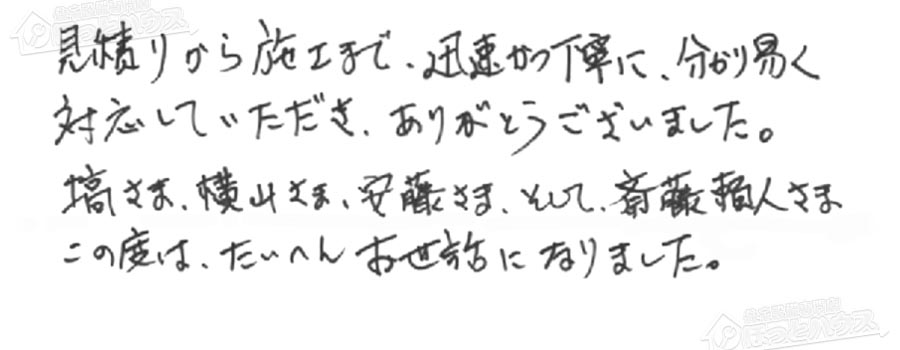 見積りから施工まで、迅速かつ丁寧に、分かり易く
対応していただき、ありがとうございました。
塙さま、横山さま、安藤さま、そして、斎藤職人さま
この度は、たいへんお世話になりました。
ほっとハウス
ほっとハウス